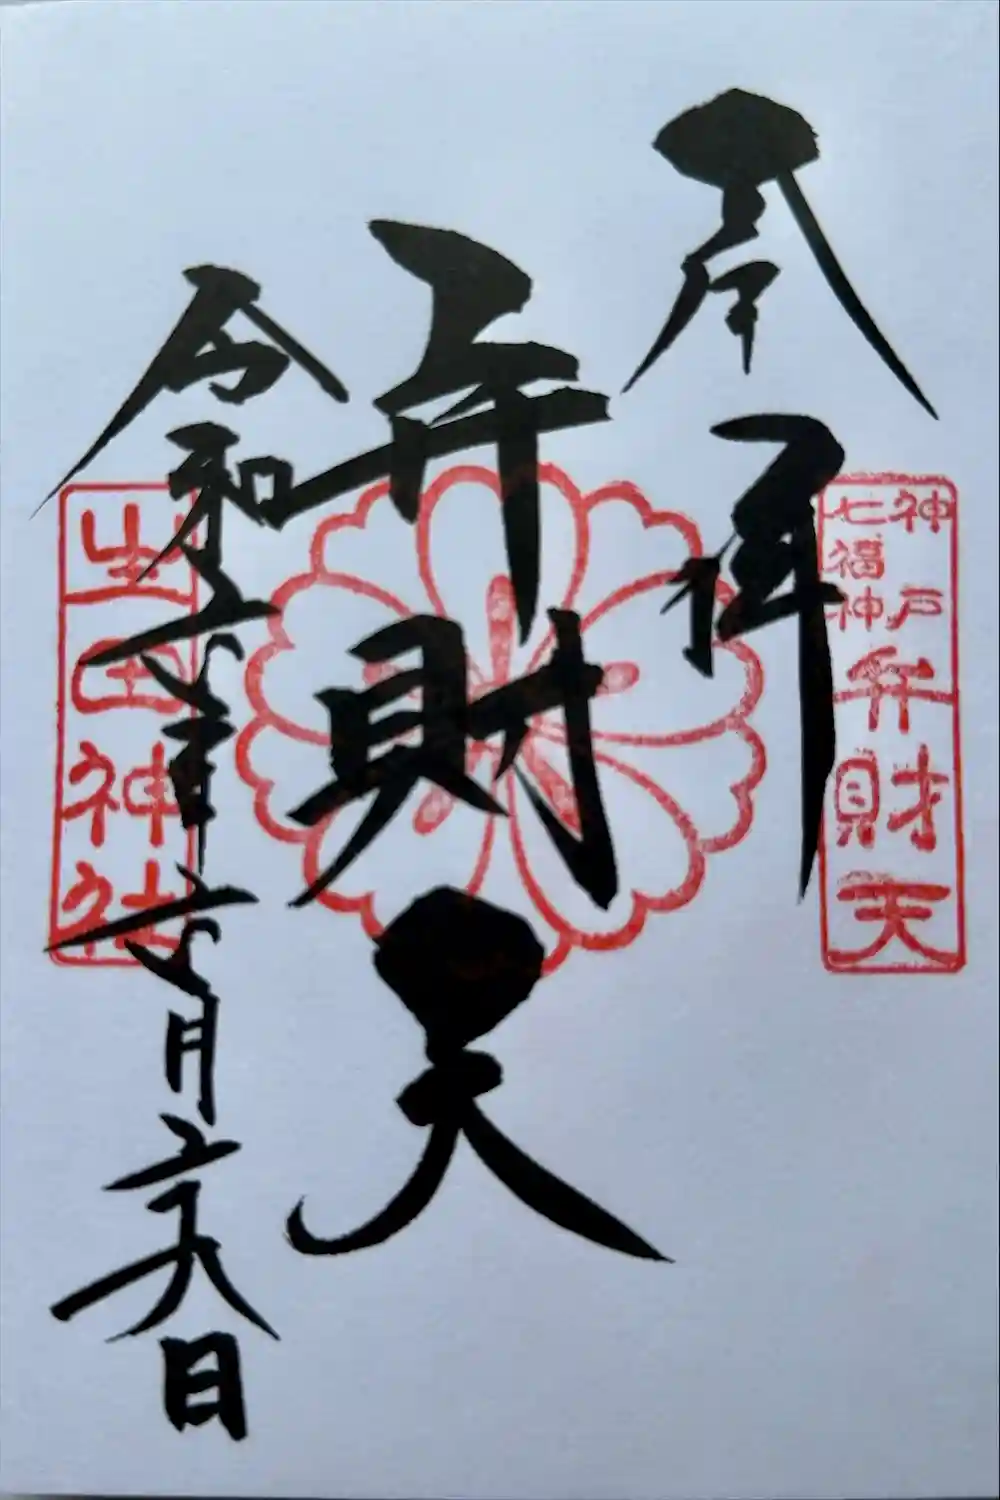 奉拝
神戸
七福神
弁財天
弁財天
令和六年六月二十八日
生田神社